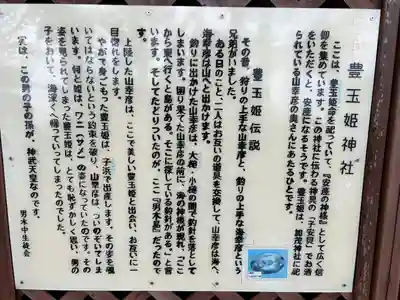 豊玉姫神社
ここは、豊玉姫命を祀っていて『安産の神様』として広く信
仰を集めています。この神社に伝わる神異の「子安貝」でお酒
をいただくと、安産になるそうです。豊玉姫は、加茂神社に祀
られている山幸彦の奥さんにあたるひとです。
豊玉姫伝説
その昔、狩りの上手な山幸彦と、釣りの上手な海幸彦という
兄弟がいました。
ある日のこと、二人はお互いの道具を交換して、山幸彦は海へ、
海幸彦は山へと出かけます。
釣りに出かけた山幸彦は、大槌・小槌の間で釣針を落として
しまいます。困り果てた山幸彦の前に、海の神様が現れ、「ここ
から東へ行くと島がある。そこに探している釣針がある。」と言
います。そしてたどりついたのが、ここ『男木島』だったので
す。
上陸した山幸彦は、ここで美しい豊玉姫と出会い、お互いに一
目惚れをします。
やがて身ごもった豊玉姫は、子浜で出産します。その姿を覗
いてはならないという約束を破り、山幸彦は、ついのぞいてしま
います。何と姫は、ワニ（サメ）の姿になっていたのです。その
姿を見られてしまった豊玉姫は、とても恥ずかしく思い、男の
子をおいて、海深くへ帰っていってしまったのでした。
実は、この男の子の孫が、神武天皇なのです。
男木中生徒会